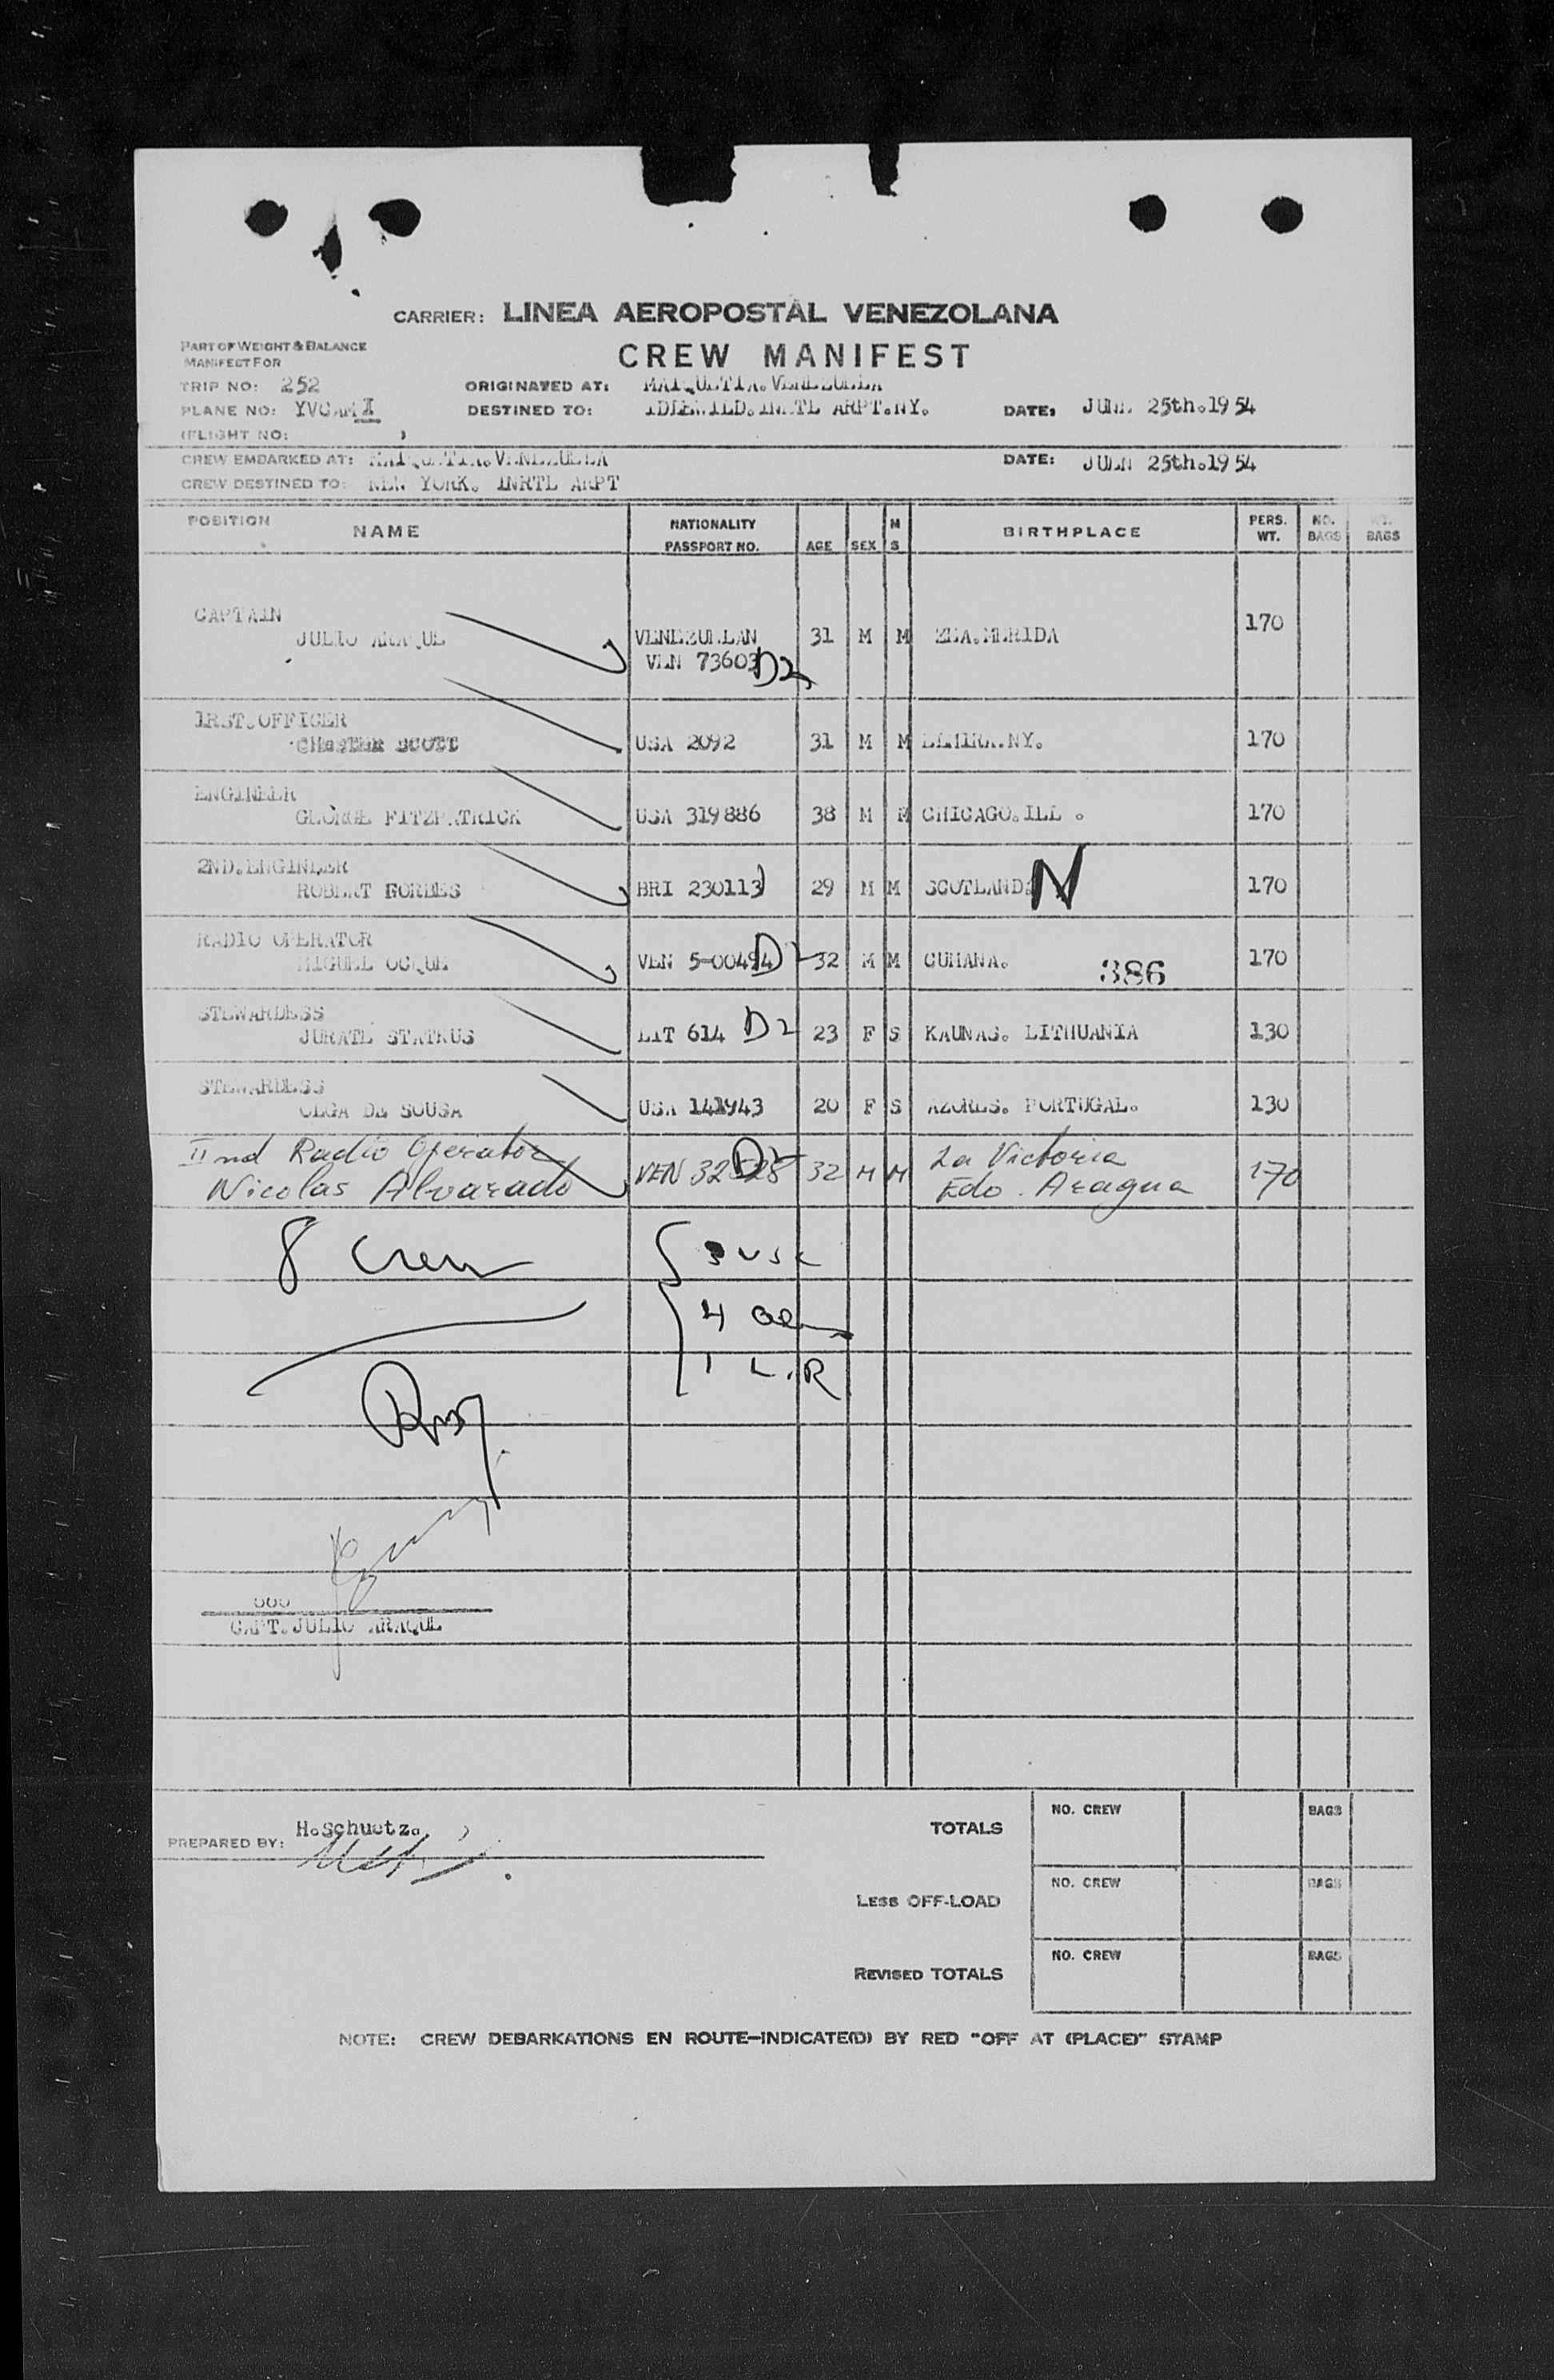 CARRIER: LINEA AEROPOSTAL VENEZOLANA
PART OF WEIGHT & BALANCE
MANIFEST FOR
CREW MANIFEST
TRIP NO: 252 ORIGINATED AT: MAIQUETIA.VENEZUELA
PLANE NO: YVCAMI DESTINED TO: IDLEWILD.INRTL ARPT.NY. DATE: JUNE 25th.1954
(FLIGHT NO: )
CREW EMBARKED AT: MAIQUETIA.VENEZUELA DATE: JUEN 25th.1954
CREW DESTINED TO: NEW YORK. INRTL ARPT
POSITION NAME NATIONALITY PASSPORT NO. AGE SEX M S BIRTHPLACE PERS. WT. NO. BAGS WT. BAGS
CAPTAIN
JULIO ARAQUE VENEZUELAN 31 M M ZEA.MERIDA 170
VEN 73603 D2
1RST.OFFICER
CHESTER SCOTT USA 2092 31 M M ELMIRA.NY. 170
ENGINEER
GEORGE FITZPATRICK USA 319886 38 M M CHICAGO.ILL . 170
2ND.ENGINEER
ROBERT FORBES BRI 230113 29 M M SCOTLAND. N 170
RADIO OPERATOR
MIGUEL OCQUE VEN 5-00494 D2 32 M M CUMANA. 386 170
STEWARDESS
JURATE STATKUS LIT 614 D2 23 F S KAUNAS. LITHUANIA 130
STEWARDESS
OLGA DE SOUSA USA 141943 20 F S AZORES. PORTUGAL. 130
IInd Radio Operator La Victoria
Nicolas Alvarado VEN 32528 D2 32 M M Edo. Aragua 170
8 Crew 3 USC
4
1 L.R
000
CAPT.JULIO ARAQUE
PREPARED BY: H.Schuetz.
TOTALS NO. CREW BAGS
LESS OFF-LOAD NO. CREW BAGS
REVISED TOTALS NO. CREW BAGS
NOTE: CREW DEBARKATIONS EN ROUTE—INDICATE(D) BY RED "OFF AT (PLACE)" STAMP